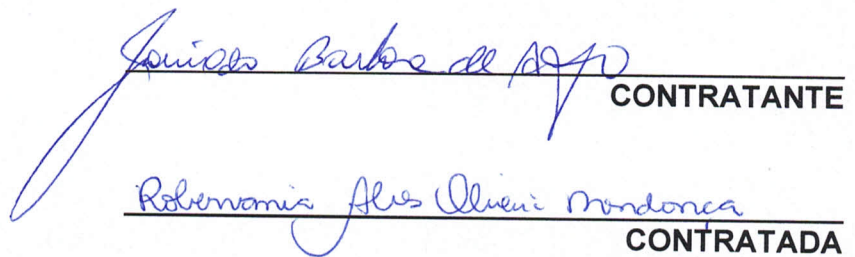 Barbosa de
CONTRATANTE
Robervania Alves Oliveira Mendonça
CONTRATADA